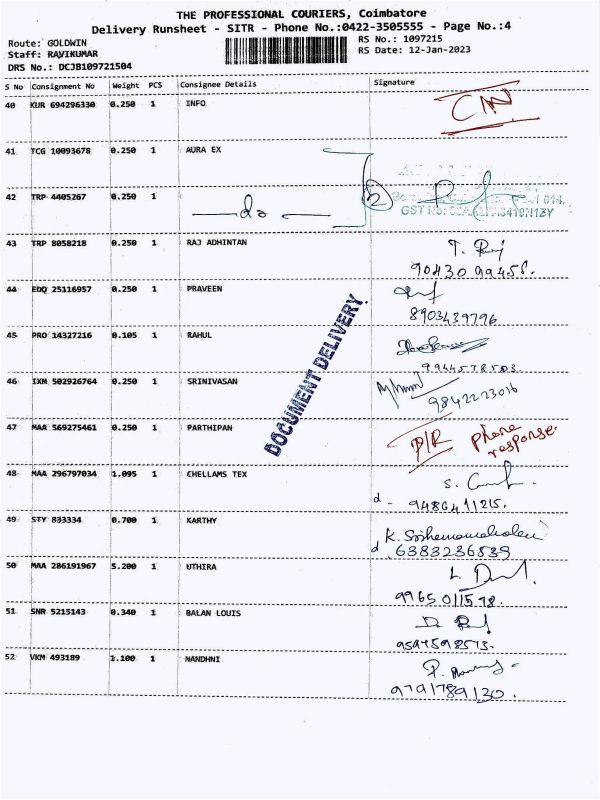 THE PROFESSIONAL COURIERS, Coimbatore
Delivery Runsheet - SITR - Phone No.:0422-3505555 - Page No.:4
Route: GOLDWIN
RS No.: 1097215
Staff: RAVIKUMAR
RS Date: 12-Jan-2023
DRS No.: DCJB109721504
S No Consignment No Weight PCS Consignee Details Signature
40 KUR 694296330 0.250 1 INFO
41 TCG 10093678 0.250 1 AURA EX
42 TRP 4405267 0.250 1 —do— 2
GST No:
43 TRP 8058218 0.250 1 RAJ ADHINTAN T. Raj
90430 99458.
44 EDQ 25116957 0.250 1 PRAVEEN
8903439796
45 PRO 14327216 0.105 1 RAHUL
9944578503
46 IXM 502926764 0.250 1 SRINIVASAN
9842223016
DOCUMENT DELIVERY
47 MAA 569275461 0.250 1 PARTHIPAN D/R phone
response.
48 MAA 296797034 1.095 1 CHELLAMS TEX S.
d - 9486411215.
49 STY 833334 0.700 1 KARTHY K.
d 6383236539
50 MAA 286191967 5.200 1 UTHIRA L.
99650 11598.
51 SNR 5215143 0.340 1 BALAN LOUIS D.
9594598573.
52 VKM 493189 1.100 1 NANDHNI P.
9791789130.